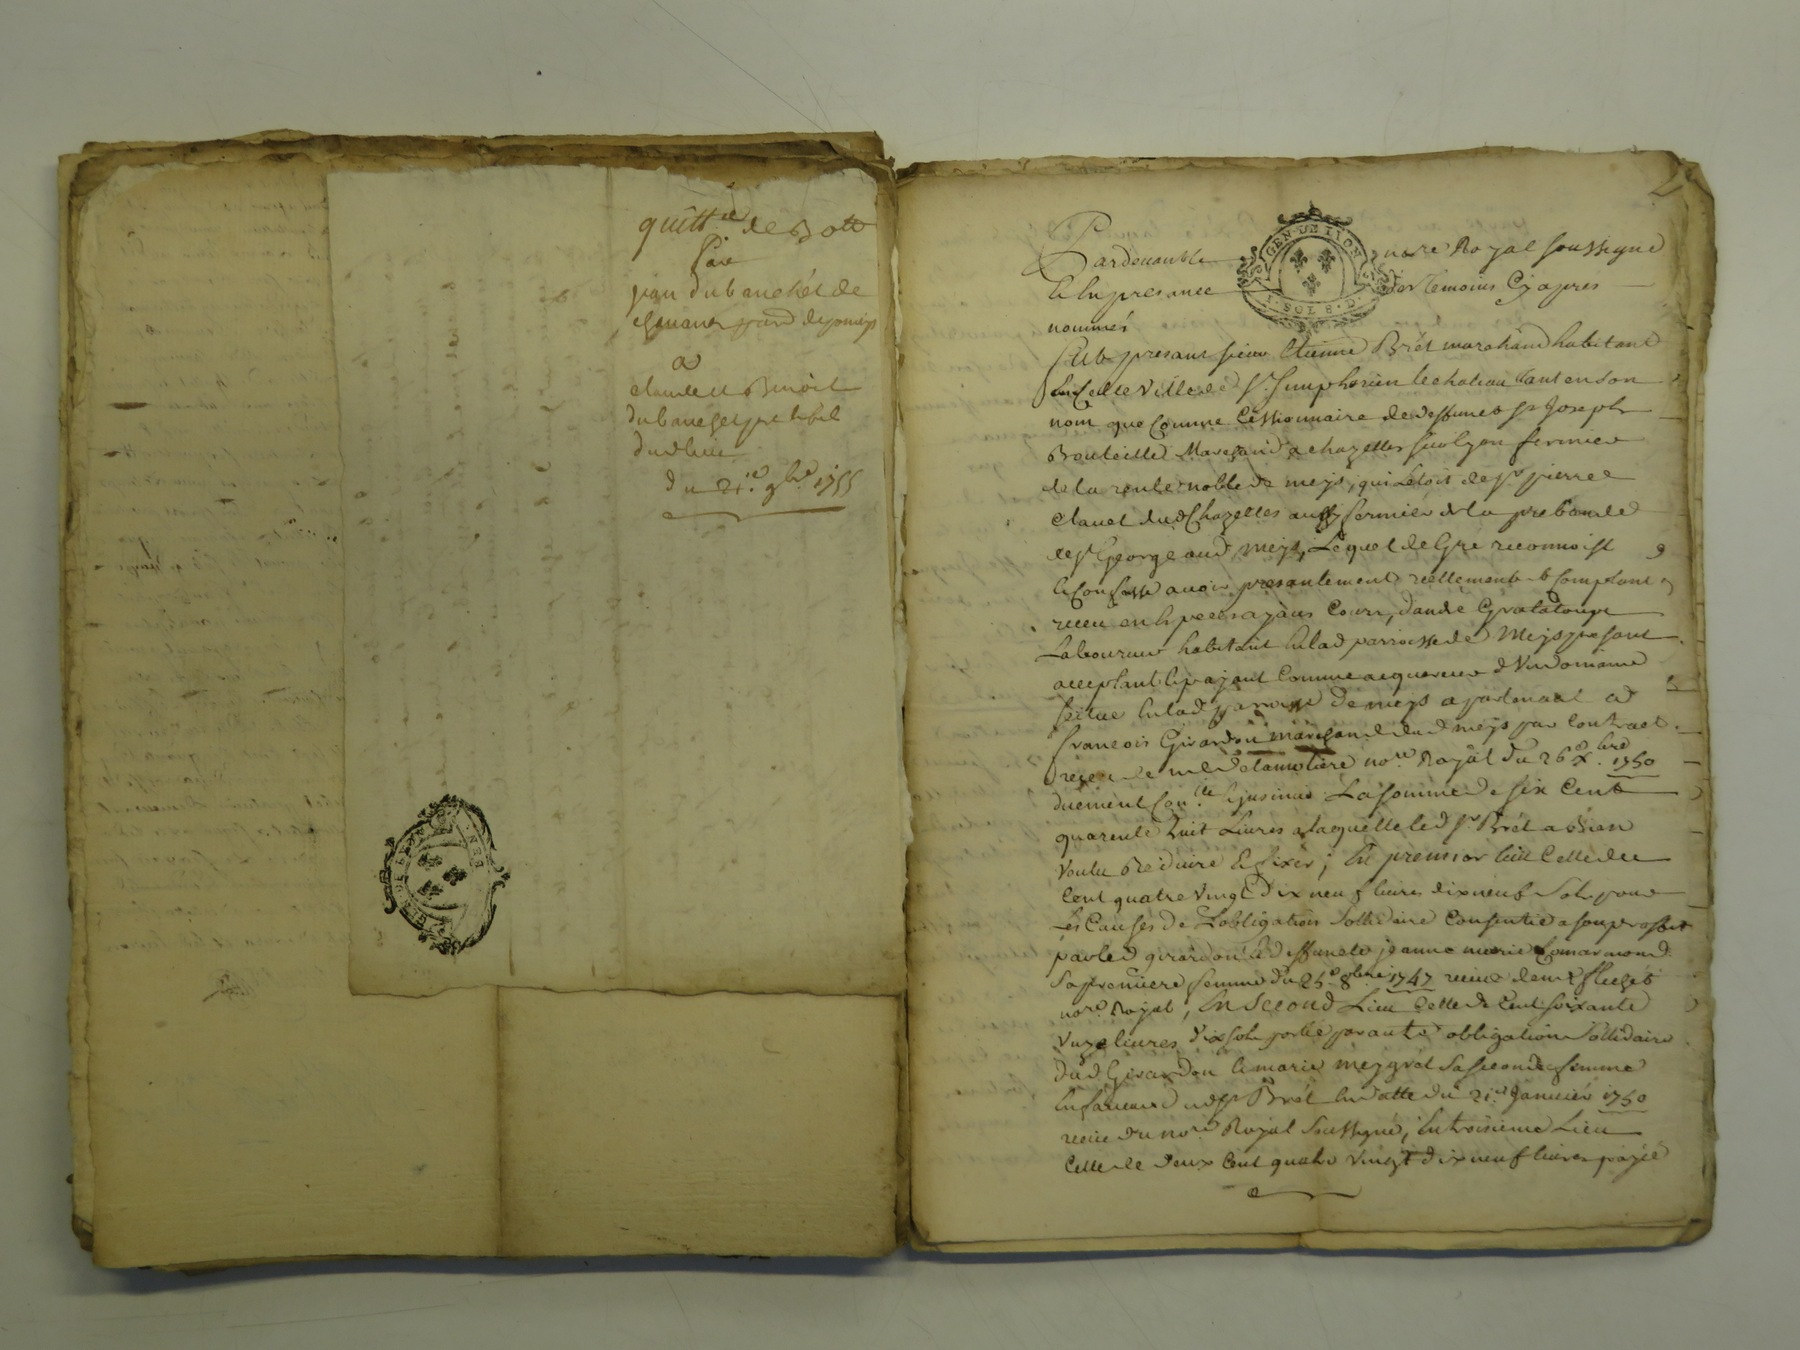 quitt.ce de Dotte
Par
jean dubanchet de
a
claude et Benoit
dubanchet
du 21.e 9bre 1755
Pardevant le nore Royal soussigné
GEN. DE LYON
1. SOL 8. D.
et en presance des temoins Cy apres
nommés
fut presant sieur Etienne Brét marchand habitant
en Cette Ville de St. Simphorien le chateau tant en son
nom que Comme Cessionnaire de deffunct sr Joseph
Bouteille Marchand a chazelles sur lyon fermier
de la rente noble de meys, qui Letoit de sr pierre
clauel dud Chazelles aussy fermier de la prebande
de st George aud meys, Lequel de Gré reconnoist
et Confesse auoir presantement réellement et Comptant
receu en especes ayans Cours, d'andré Grataloupe
Laboureur habitant en lad parroisse de Meys presant
acceptant et payant Comme acquereur d'Un domaine
scitué en lad parroisse de meys apartenant a
francois Girardon marchand dud meys par Contract
receu me delamotiere nore Royal du 26 xbre 1750
duement Con.lé et jnsinué La somme de six Cent
quarente huit Liures a laquelle led sr Brét a Bien
Voulu Reduire et fixer; En premier lieu Celle de
Cent quatre vingt dix neuf liures dix neuf Sols pour
Les Causes de L'obligation Sollidaire Consentie a son proffit
par led girardon et deffuncte jeanne marie
Sa premiere femme du 25.e 8bre 1747 receue de me
nore Royal, En Second Lieu Celle de Cent soixante
Unze liures dix sols portée par autre obligation Sollidaire
dud Girardon et marie meygret sa seconde femme
En faueur dud sr Brét En datte du 21.e Januier 1750
receue du nore Royal Soussigné, En troisieme Lieu
Celle de deux Cent quatre vingt dix neuf liures payée